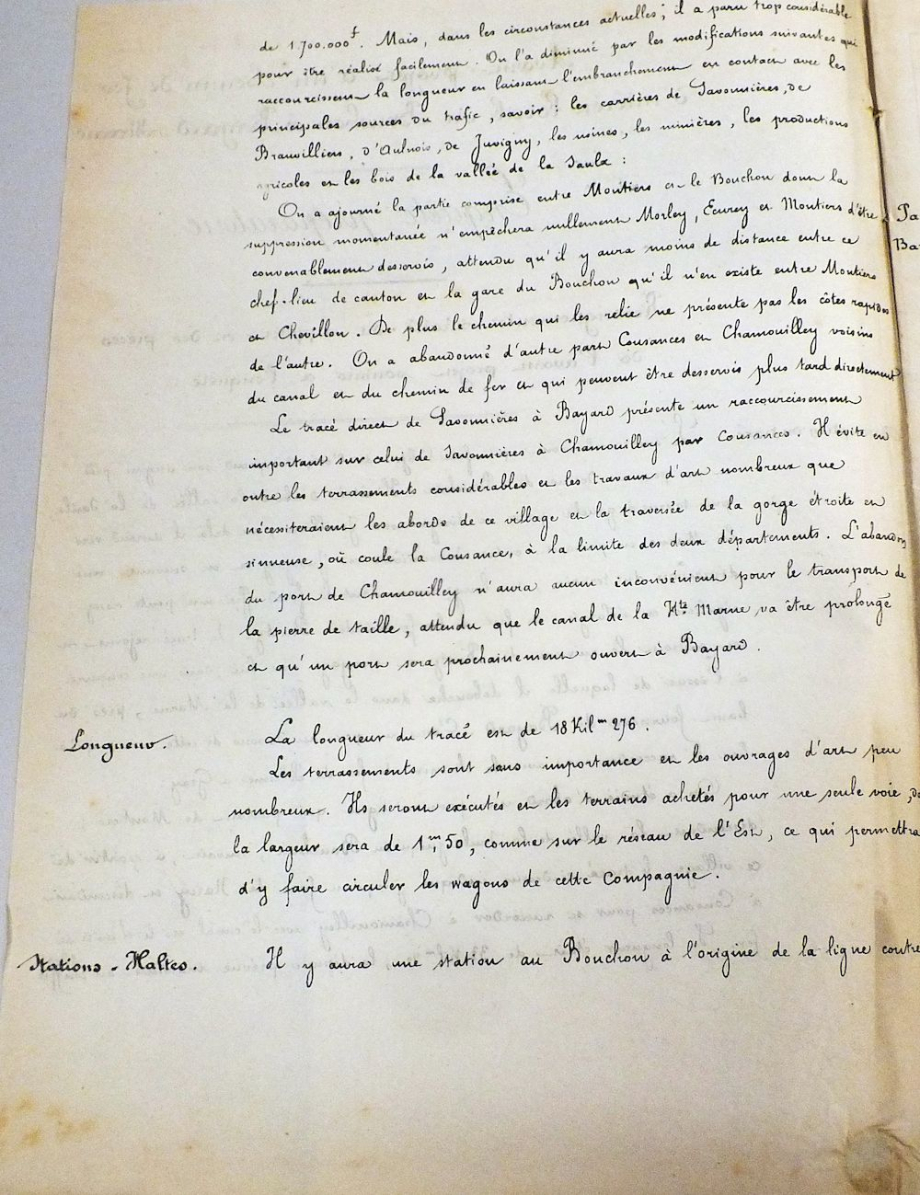 de 1.700.000f. Mais, dans les circonstances actuelles, il a paru trop considérable
pour être réalisé facilement. On l'a diminué par les modifications suivantes qui
raccourcissent la longueur en laissant l'embranchement en contact avec les
principales sources du trafic, savoir : les carrières de Savonnières, de
Brauvilliers, d'Aulnois, de Juvigny, les usines, les minières, les productions
agricoles et les bois de la vallée de la Saulx :
On a ajourné la partie comprise entre Moutiers et le Bouchon dont la
suppression momentanée n'empêchera nullement Morley, Ecurey et Moutiers d'être
convenablement desservis, attendu qu'il y aura moins de distance entre ce
chef-lieu de canton et la gare du Bouchon qu'il n'en existe entre Moutiers
et Chevillon. De plus le chemin qui les relie ne présente pas les côtes rapides
de l'autre. On a abandonné d'autre part Cousances et Chamouilley voisins
du canal et du chemin de fer et qui peuvent être desservis plus tard directement
Le tracé direct de Savonnières à Bayard présente un raccourcissement
important sur celui de Savonnières à Chamouilley par Cousances. Il évite en
outre les terrassements considérables et les travaux d'art nombreux que
nécessiteraient les abords de ce village et la traversée de la gorge étroite et
sinueuse, où coule la Cousance, à la limite des deux départements. L'abandon
du port de Chamouilley n'aura aucun inconvénient pour le transport de
la pierre de taille, attendu que le canal de la Hte Marne va être prolongé
et qu'un port sera prochainement ouvert à Bayard.
Longueur. La longueur du tracé est de 18 Kilm 276.
Les terrassements sont sans importance et les ouvrages d'art peu
nombreux. Ils seront exécutés et les terrains achetés pour une seule voie,
la largeur sera de 1m,50, comme sur le réseau de l'Est, ce qui permettra
d'y faire circuler les wagons de cette Compagnie.
Stations - Haltes. Il y aura une station au Bouchon à l'origine de la ligne contre